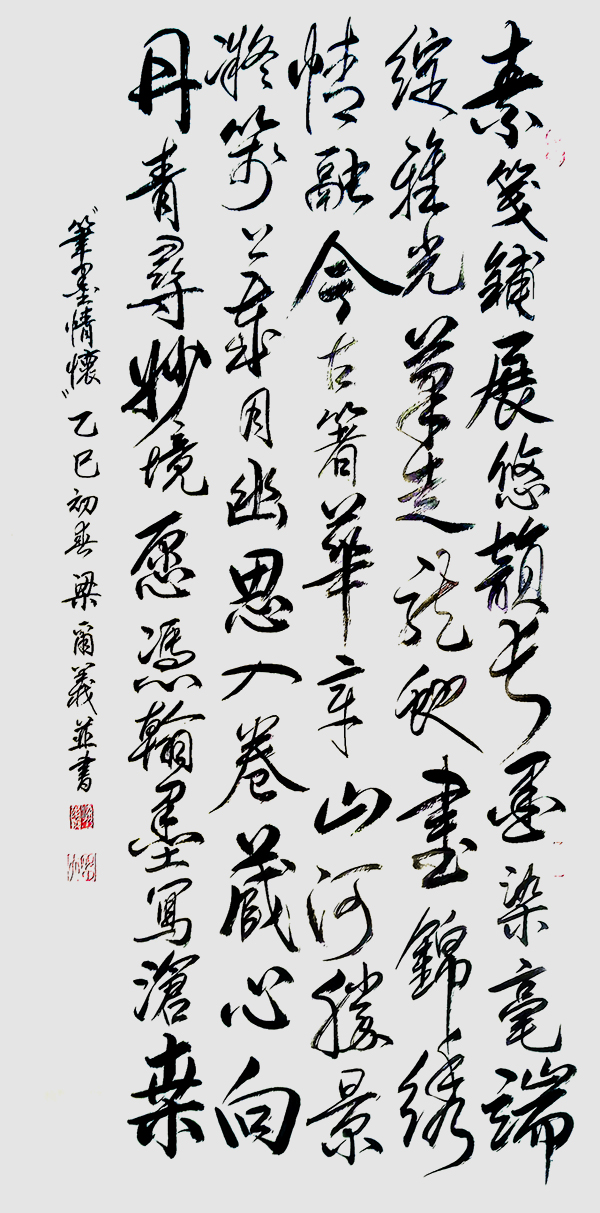 素箋鋪展悠韻长墨染毫端
綻雅光筆走龍蛇書錦绣
情融今古箸華章山河勝景
凝箋上歲月幽思入卷藏心向
丹青尋妙境愿憑翰墨寫滄桑
“筆墨情懷”乙巳初春梁爾義並書